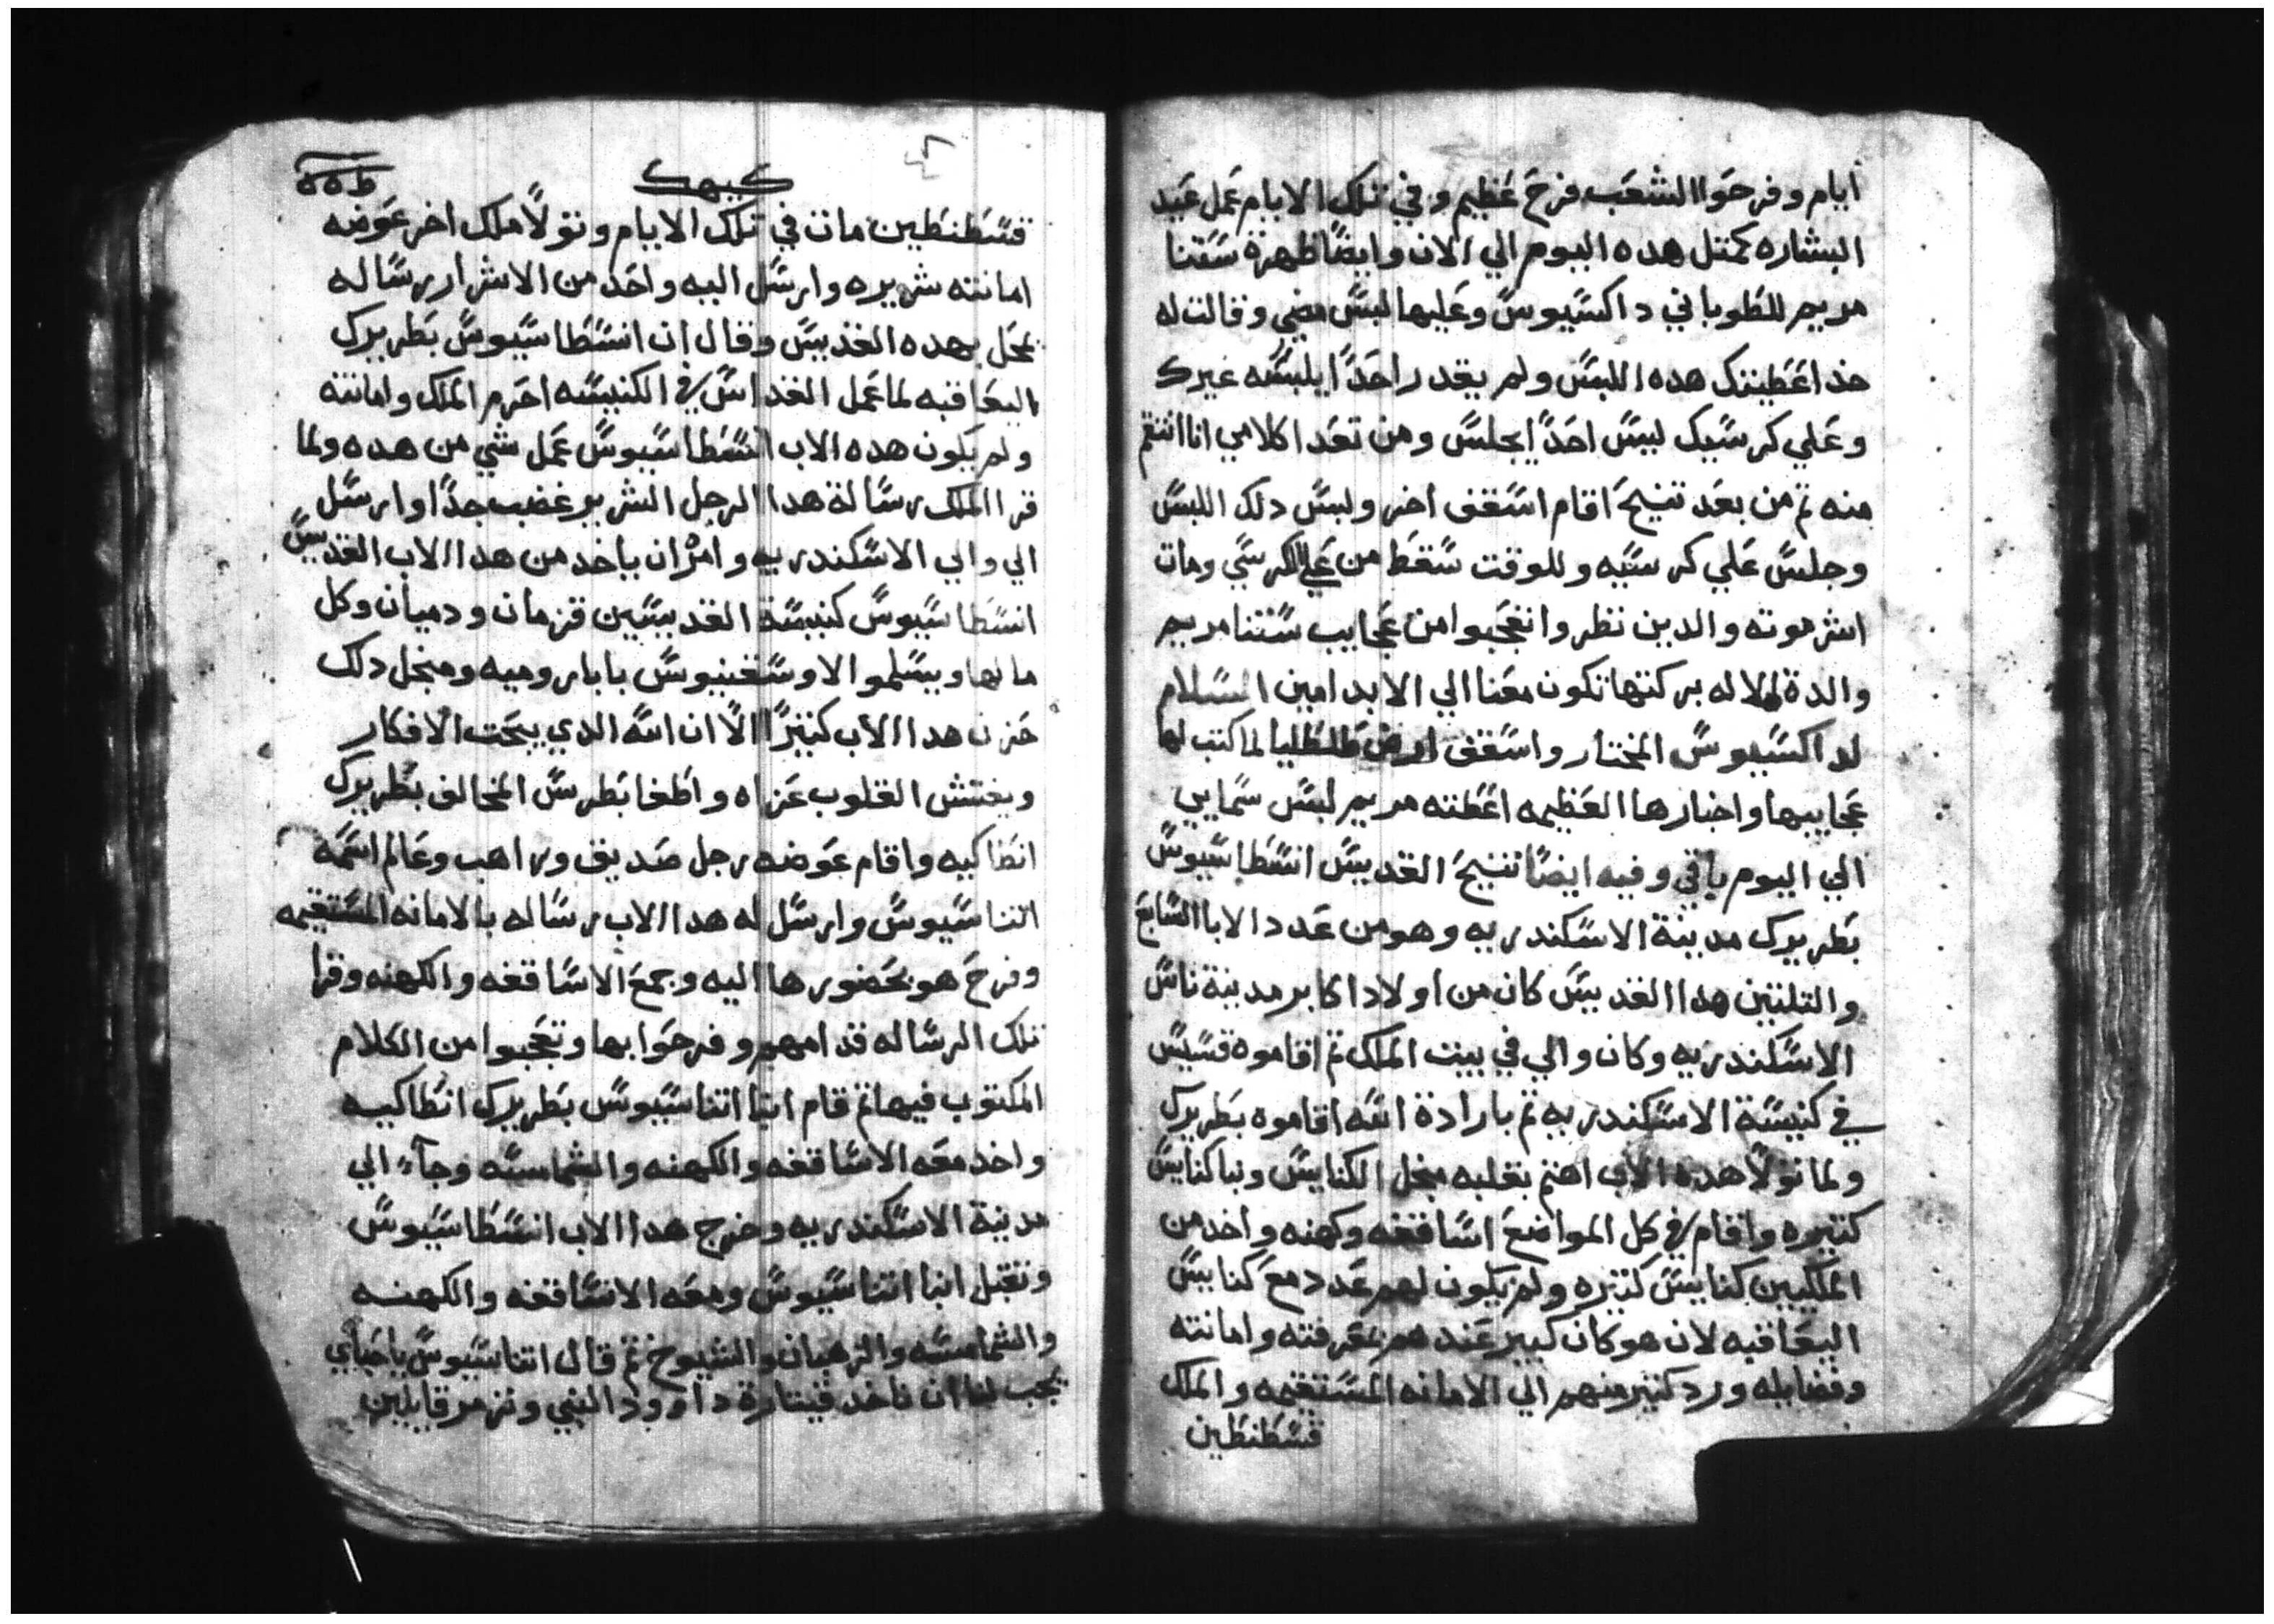 ايام وفرحوا الشعب فرح عظيم وفي تلك الايام عمل عيد
البشاره كمتل هده اليوم الي الان وايضًا ظهرة ستنا
مريم للطوباني داكسيوس وعليها لبس مضي وقالت له
خد اعطيتك هده اللبس ولم يقدر احدًا يلبسه غيرك
وعلي كرسيك ليس احدًا يجلس ومن تعدا كلامي انا انتقم
منه تم من بعد تنيح اقام اسقف اخر ولبس دلك اللبس
وجلس علي كرسيه وللوقت سقط من علي الكرسي ومات
اشر موته والدين نظروا تعجبوا من عجايب ستنا مريم
والدة الاله بركتها تكون معنا الي الابد امين السلام
لداكسيوس المختار واسقف ارض طلطليا لما كتب لها
عجايبها واخبارها العظيمه اعطته مريم لبس سمايي
الي اليوم باقي وفيه ايضًا تنيح القديس انسطاسيوس
بطريرك مدينة الاسكندريه وهو من عدد الابا السابع
والتلتين هدا القديس كان من اولاد اكابر مدينة ناس
الاسكندريه وكان والي في بيت الملك تم اقاموه قسيس
في كنيسة الاسكندريه تم بارادة الله اقاموه بطريرك
ولما تولا هده الاب اهتم بقلبه مجل الكنايس وبنا كنايس
كتيره واقام في كل المواضع اساقفه وكهنه واخد من
الملكيين كنايس كتيره ولم يكون لهم عدد مع كنايس
اليعاقبه لان هو كان كبير عندهم بمعرفته وامانته
وفضايله ورد كتير منهم الي الامانه المستقيمه والملك
قسطنطين
كيهك
قسطنطين مات في تلك الايام وتولا ملك اخر عوضه
امانته شريره وارسل اليه واحد من الاشرار رساله
مجل بهده القديس وقال ان انسطاسيوس بطريرك
اليعاقبه لما عمل القداس في الكنيسه احرم الملك وامانته
ولم يكون هده الاب انسطاسيوس عمل شي من هده ولما
قرا الملك رسالة هدا الرجل الشرير غضب جدًا وارسل
الي والي الاسكندريه وامر ان ياخد من هدا الاب القديس
انسطاسيوس كنيسة القديسين قزمان ودميان وكل
مالها ويسلموا الاوسغنيوس بابا روميه ومنجل دلك
حزن هدا الاب كتيرًا الا ان الله الدي يبحت الافكار
ويفتش القلوب عزاه واطغا بطرس المخالف بطريرك
انطاكيه واقام عوضه رجل صديق وراهب وعالم اسمه
اتناسيوس وارسل له هدا الاب رساله بالامانه المستقيمه
وفرح هو بحضورها اليه وجمع الاساقفه والكهنه وقرا
تلك الرساله قدامهم وفرحوا بها وتعجبوا من الكلام
المكتوب فيها تم قام ابنا اتناسيوس بطريرك انطاكيه
واخد معه الاساقفه والكهنه والشماسه وجاء الي
مدينة الاسكندريه وخرج هدا الاب انسطاسيوس
وتقبل ابنا اتناسيوس ومعه الاساقفه والكهنه
والشمامسه والرهبان والشيوخ تم قال اتناسيوس يا احباي
يجب لنا ان ناخد قيتارة داوود النبي ونزمر قايلين